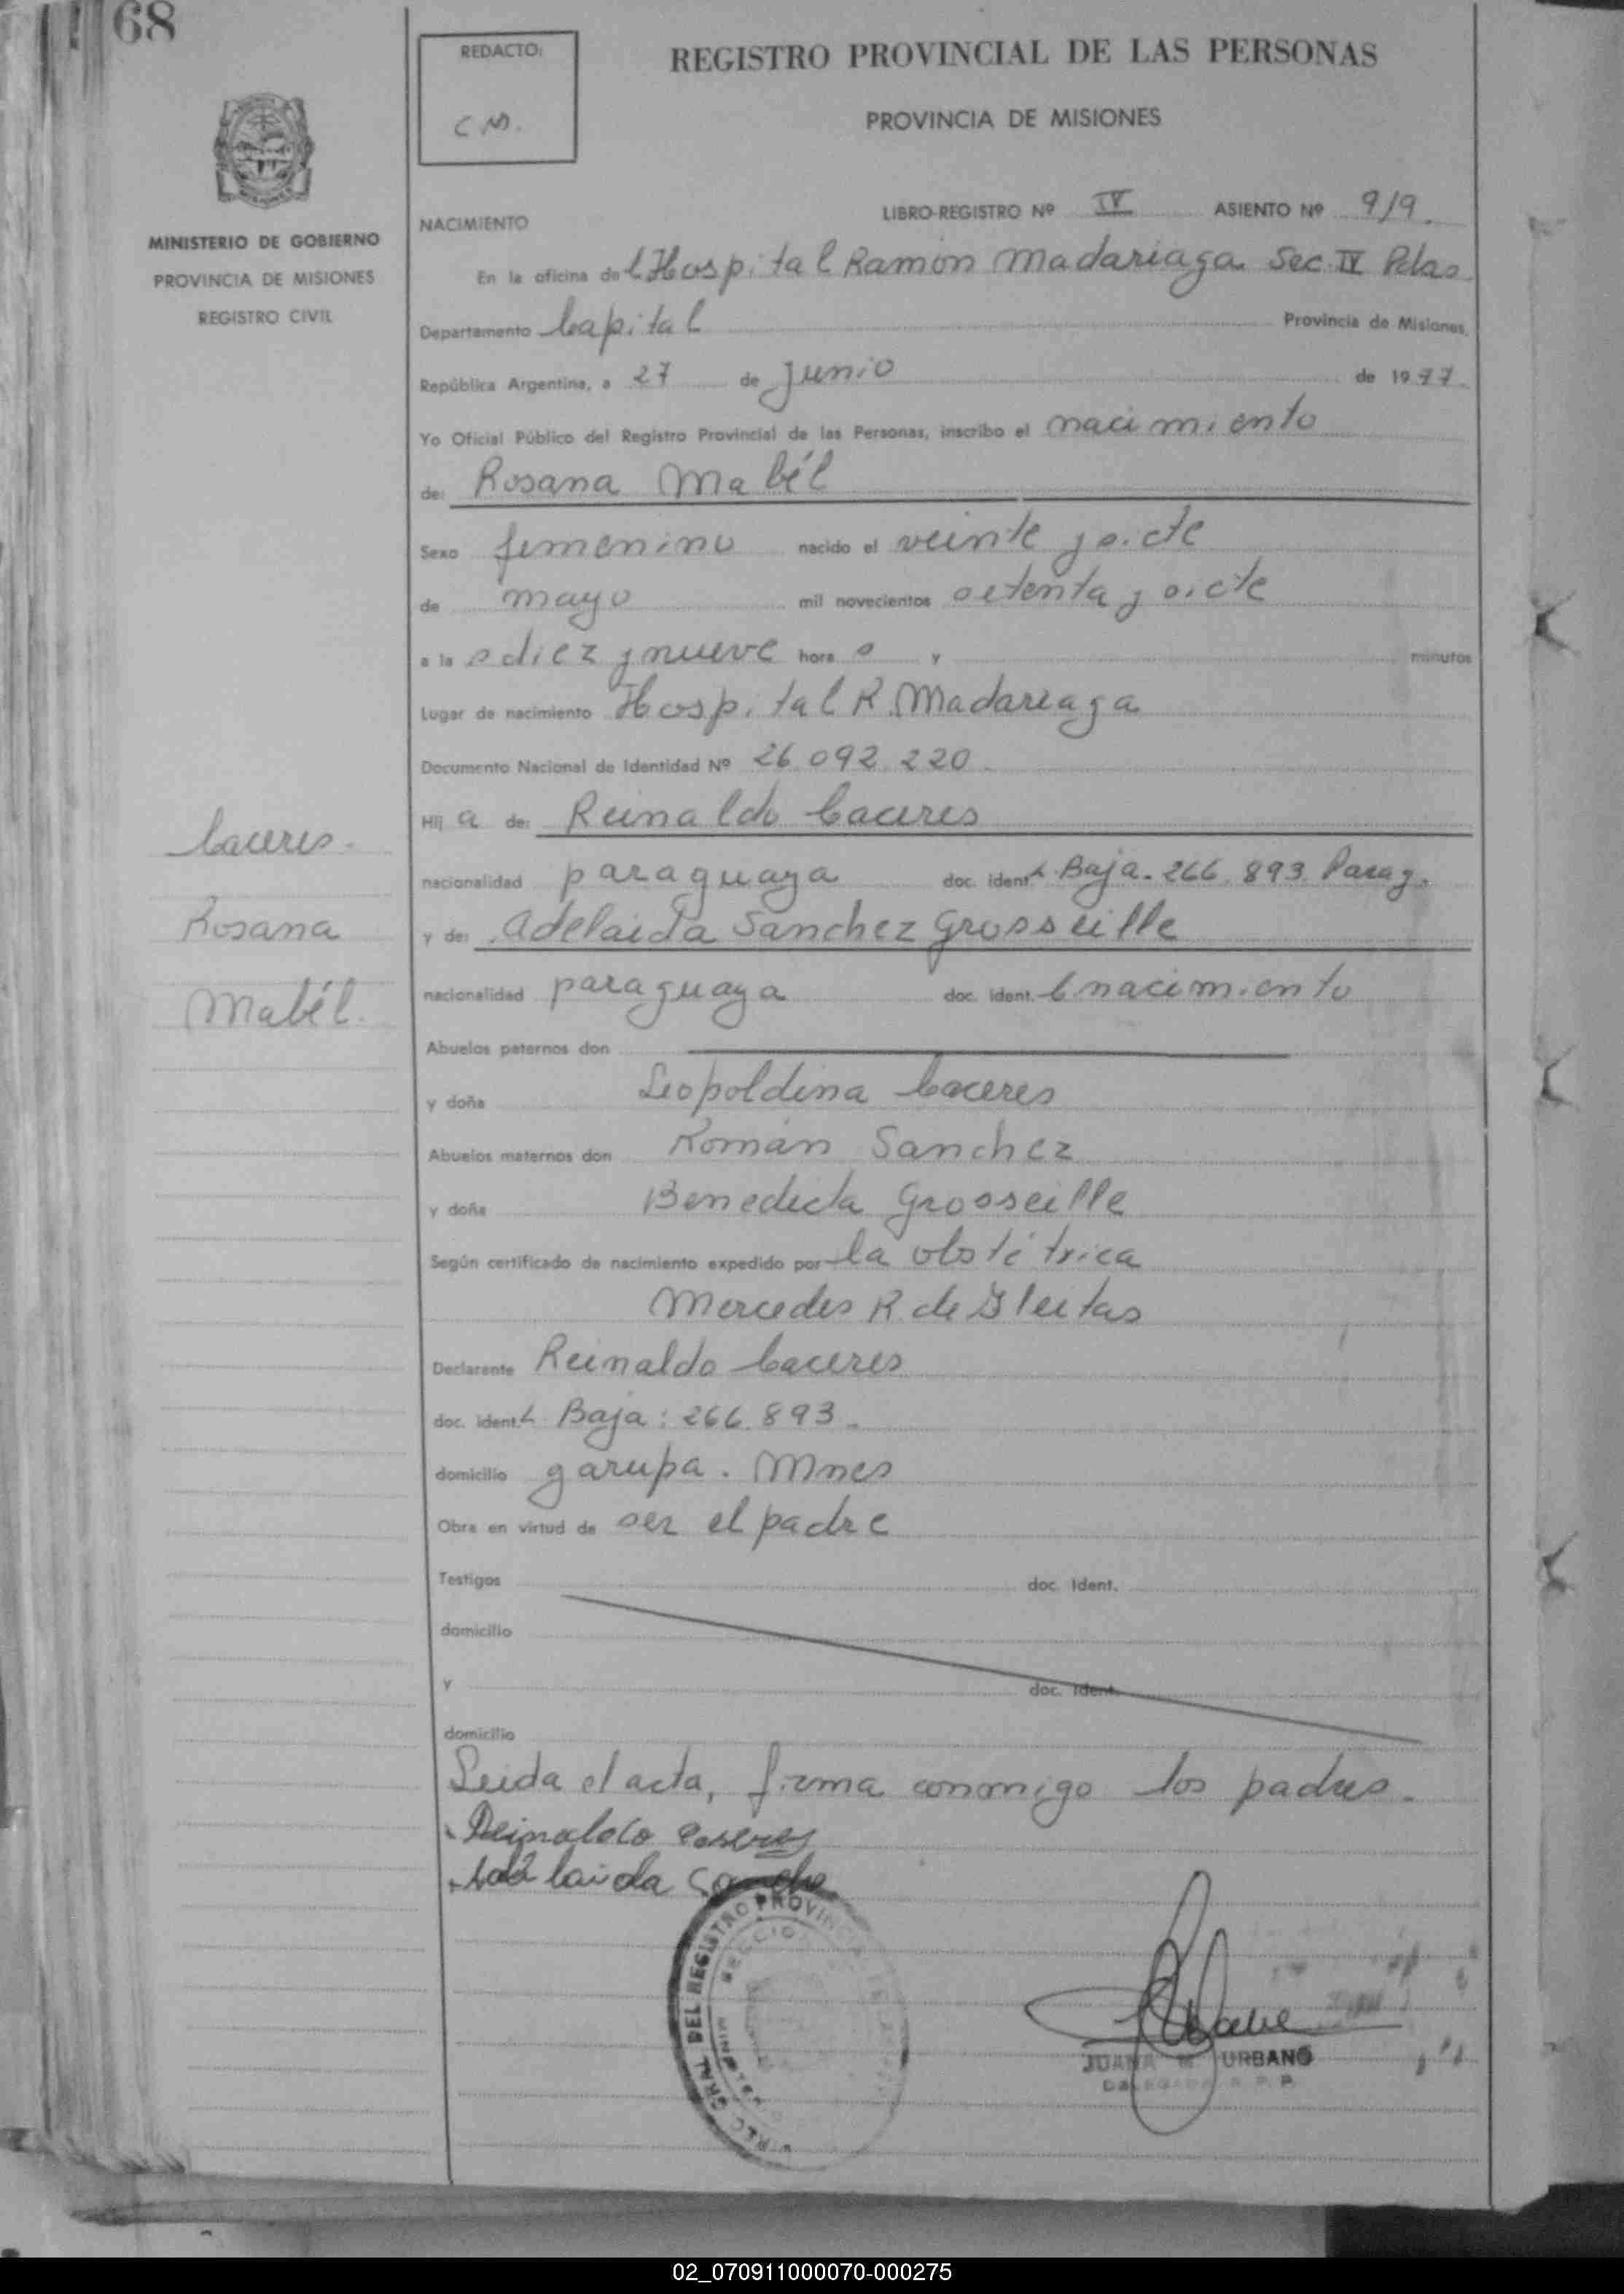 68
REDACTO:
C M.
REGISTRO PROVINCIAL DE LAS PERSONAS
PROVINCIA DE MISIONES
MINISTERIO DE GOBIERNO
PROVINCIA DE MISIONES
REGISTRO CIVIL
LIBRO-REGISTRO Nº IV ASIENTO Nº 919.
NACIMIENTO
En la oficina del Hospital Ramón Madariaga Sec. IV Pdas.
Departamento Capital Provincia de Misiones.
República Argentina, a 27 de Junio de 1977.
Yo Oficial Público del Registro Provincial de las Personas, inscribo el nacimiento
de: Rosana Mabél
Sexo femenino nacido el veinte y siete
de mayo mil novecientos setenta y siete
a la s diez y nueve hora s y minutos
Lugar de nacimiento Hospital R. Madariaga
Documento Nacional de Identidad Nº 26.092.220.
Hij a de: Reinaldo Caceres
nacionalidad paraguaya doc. ident. Baja. 266.893 Parag.
y de: Adelaida Sanchez Grosseille
nacionalidad paraguaya doc. ident. C nacimiento
Caceres.
Rosana
Mabél.
Abuelos paternos don
y doña Leopoldina Caceres
Abuelos maternos don Román Sanchez
y doña Benedicta Grosseille
Según certificado de nacimiento expedido por la obstétrica
Mercedes R. de Gleitas
Declarante Reinaldo Caceres
doc. ident. Baja: 266.893.
domicilio garupa. Mnes
Obra en virtud de ser el padre
Testigos doc. Ident.
domicilio
y doc. Ident.
domicilio
Leida el acta, firma conmigo los padres.
Reinaldo Caseres
Adelaida Sanche
DIREC. GRAL. DEL REGISTRO PROVINCIAL
SECCION
JUANA M URBANO
DELEGADA R. P. P.
02_070911000070-000275